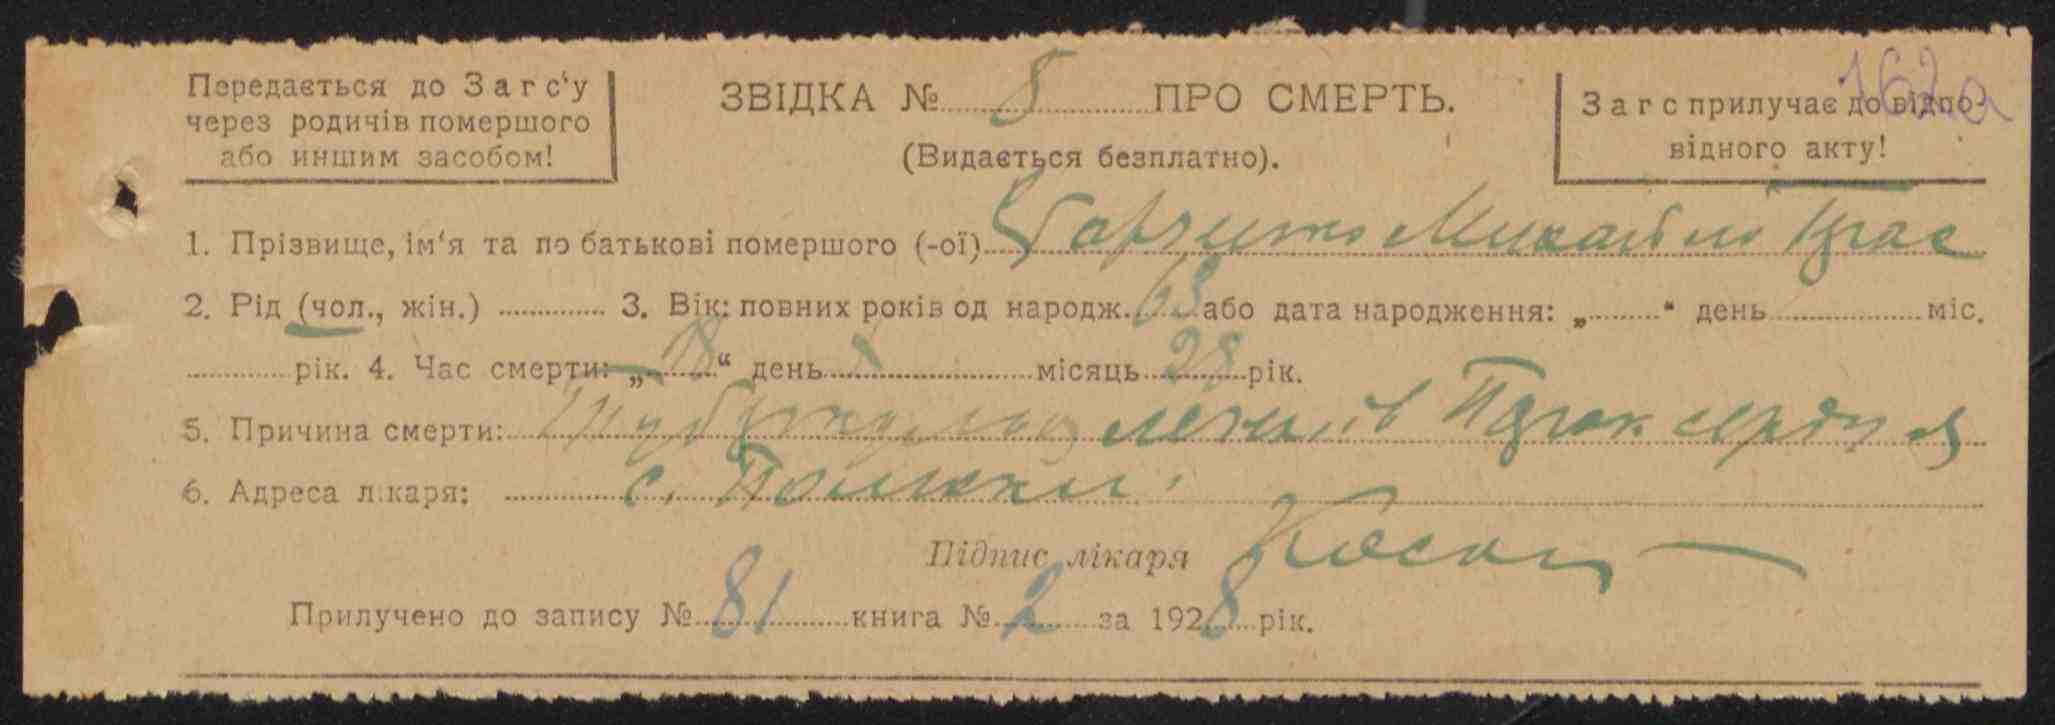 Передається до Загс'у
через родичів помершого
або иншим засобом!
ЗВІДКА № 8 ПРО СМЕРТЬ.
(Видається безплатно).
162а
Загс прилучає до відпо-
відного акту!
1. Прізвище, ім'я та по батькові помершого (-ої) Михайло
2. Рід (чол., жін.) 3. Вік: повних років од народж. 63 або дата народження: „ “ день міс.
рік. 4. Час смерти: „18“ день X місяць 28 рік.
5. Причина смерти: легенів
6. Адреса лікаря: с.
Підпис лікаря
Прилучено до запису № 81 книга № 2 за 1928 рік.